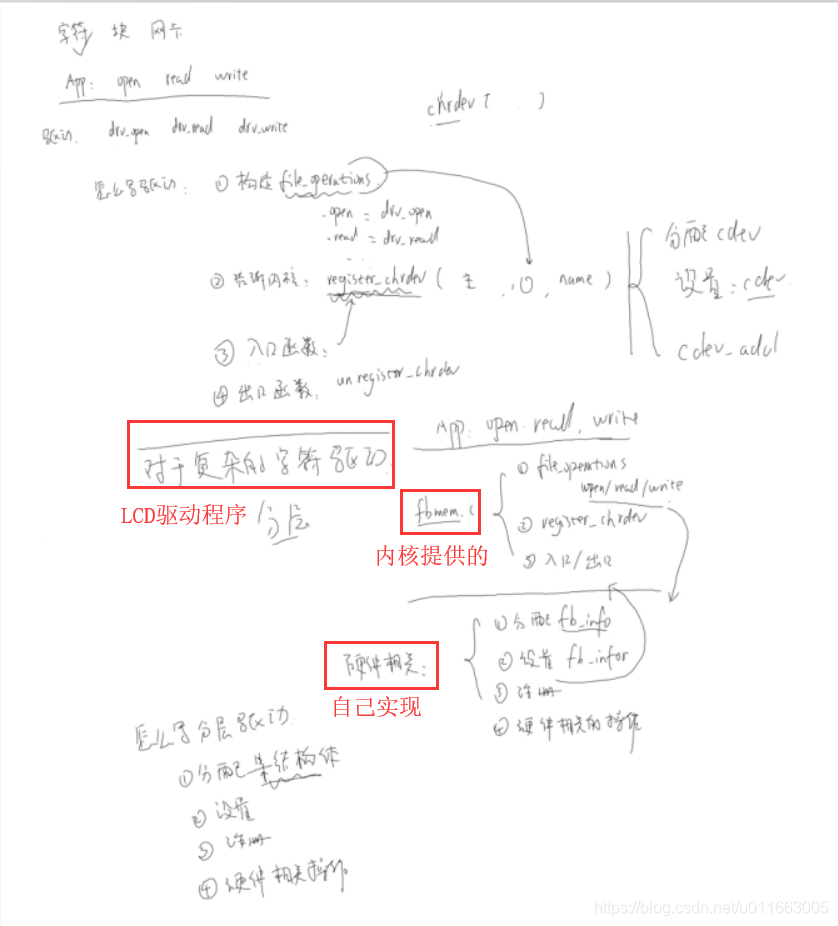 字符 块 网卡
App: open read write
驱动. drv_open drv_read drv_write
chrdev [ . ]
怎么写驱动: ① 构造 file_operations
.open = drv_open
.read = drv_read
...
② 告诉内核: register_chrdev ( 主 , , name )
③ 入口函数:
④ 出口函数: unregister_chrdev
分配 cdev
设置: cdev
cdev_add
对于复杂的字符驱动
LCD驱动程序 分层
App: open. read, write
fbmem.c
内核提供的
① file_operations
open/read/write
② register_chrdev
③ 入口/出口
硬件相关:
自己实现
① 分配 fb_info
② 设置 fb_infor
③ 注册
④ 硬件相关的操作
怎么写分层驱动
① 分配某结构体
② 设置
③ 注册
④ 硬件相关操作
https://blog.csdn.net/u011663005